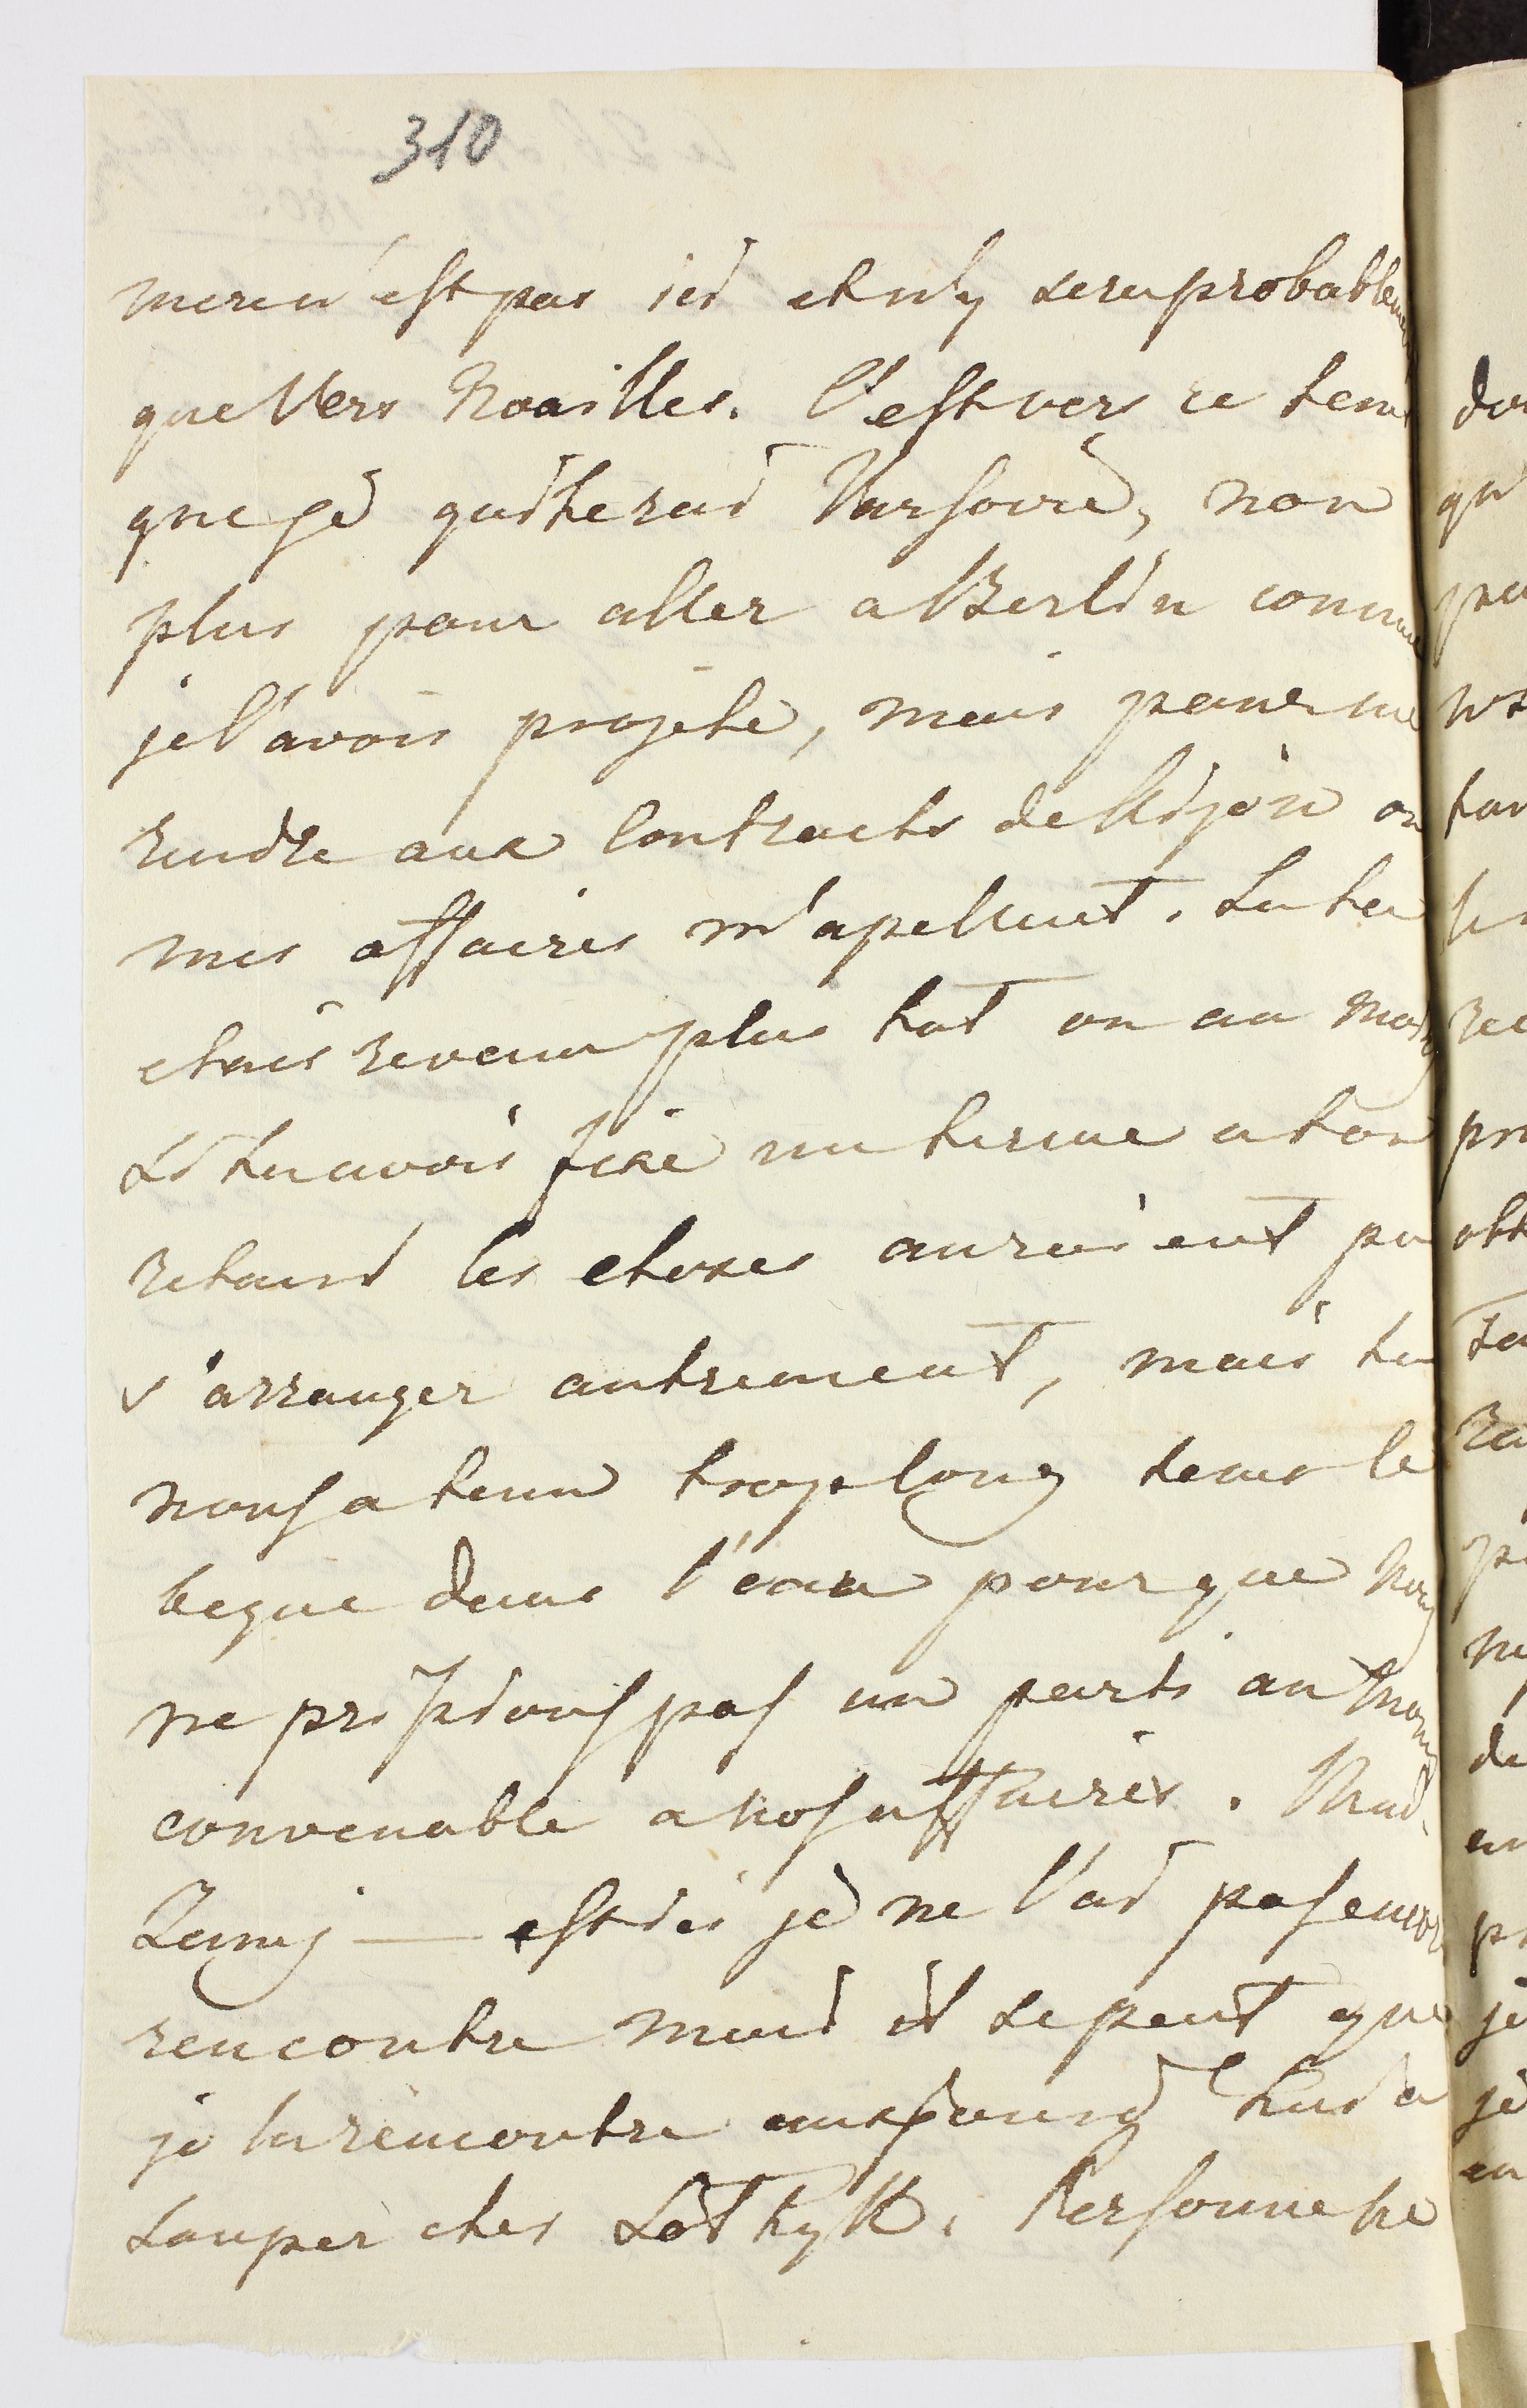 310
mere n'est pas ici et n'y sera probablement
que vers Noailles. C'est vers ce tems
que je quiterai Varsovie, non
plus pour aller a Berlin comme
je l'avois projeté, mais pour me
rendre aux Contracts de Kijow ou
mes affaires m'apellent. Si tu
etais revenu plus tot ou au moins
si tu avois fixé un terme a ton
retard les choses auraient pu
s'arranger autrement, mais tu
nous a tenu trop long tems le
beque dans l'eau pour que nous
ne prissions pas un parti au moins
convenable a nos affaires. Mad.
Zamoj — est ici je ne l'ai pas encore
rencontre mais il se peut que
je la rencontre aujourd'hui a
souper ches Soltyk. Personne ne